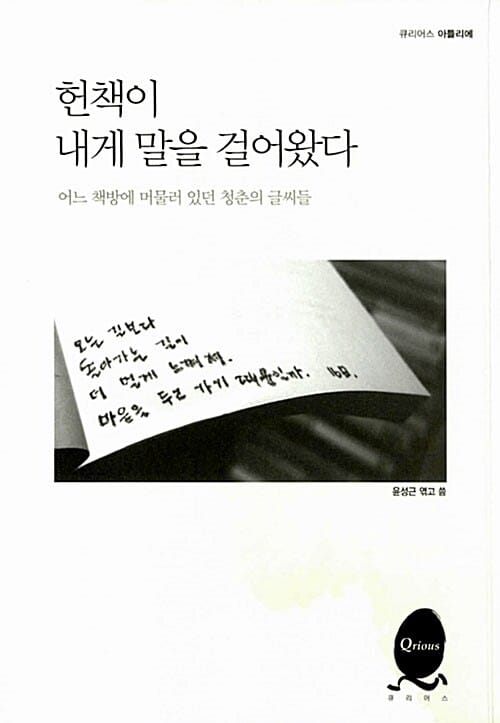 큐리어스 아틀리에
헌책이
내게 말을 걸어왔다
어느 책방에 머물러 있던 청춘의 글씨들
오는 길보다
돌아가는 길이
더 멀게 느껴져.
마음을 두고 가기 때문일까.
윤성근 엮고 씀
Qrious
큐리어스